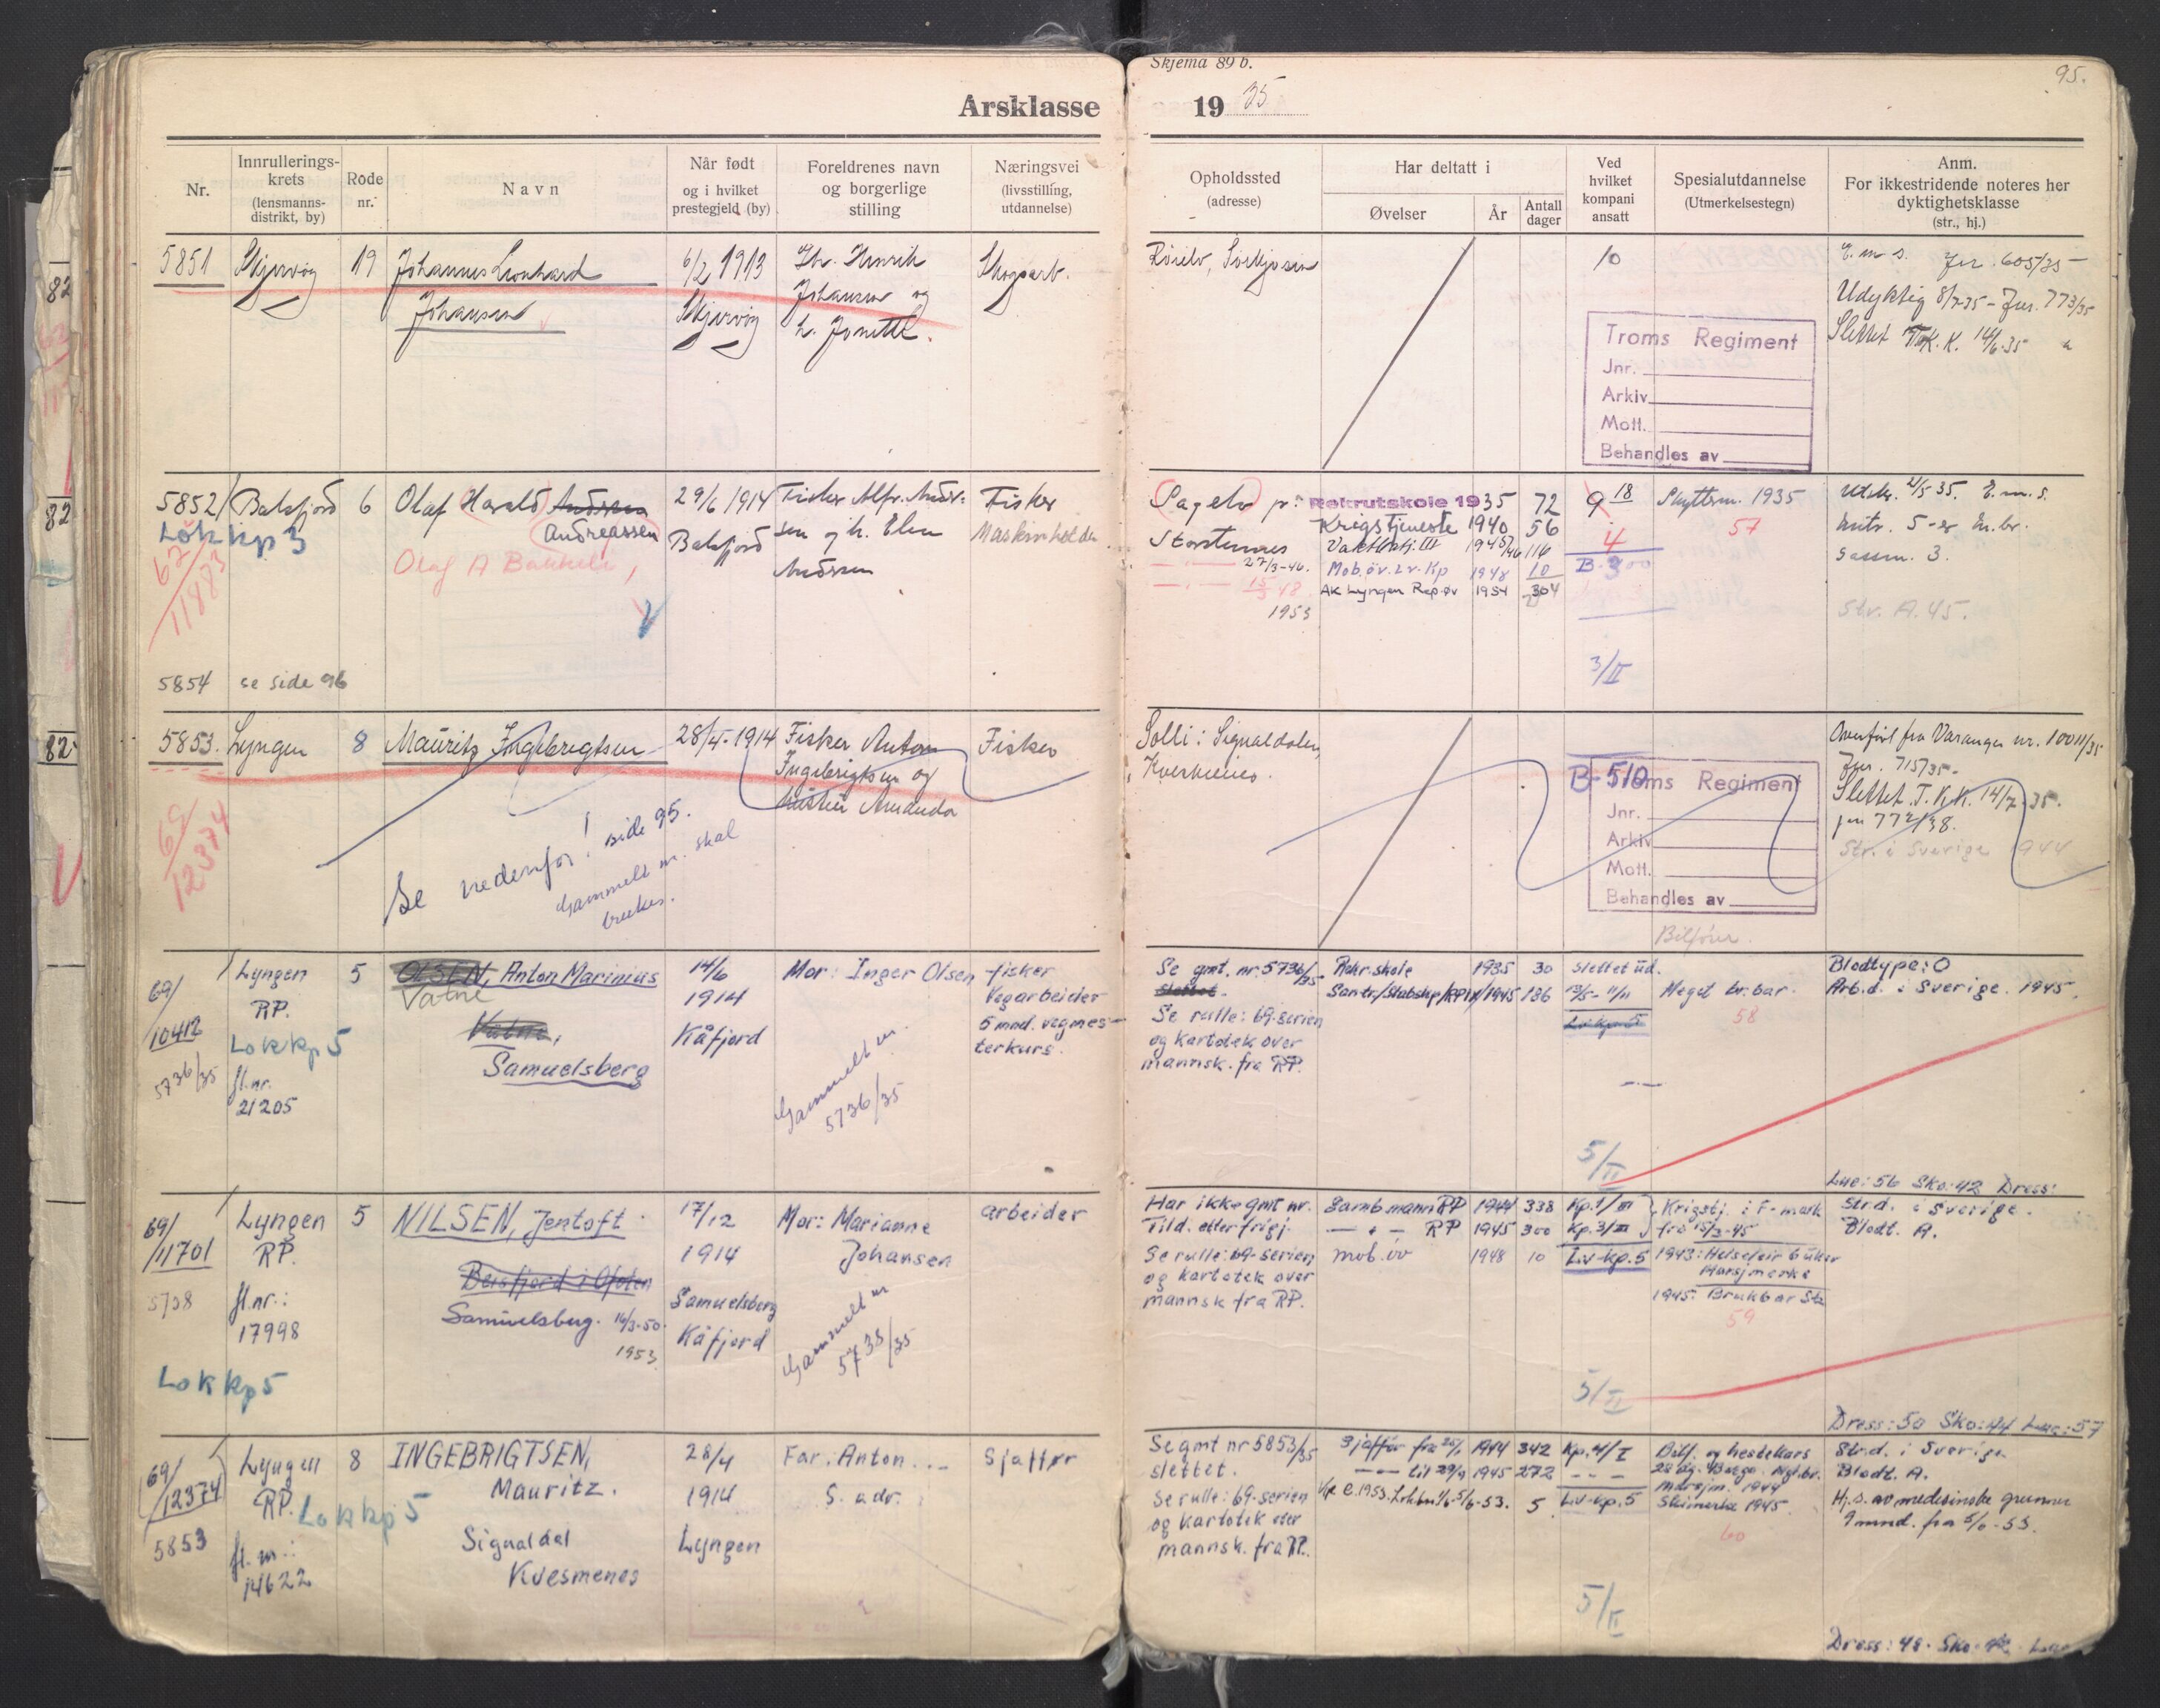 Skjema 89 b.
95.
Årsklasse 19 35
Nr.
Innrullerings-
krets
(lensmanns-
distrikt, by)
Rode
nr.
Navn
Når født
og i hvilket
prestegjeld (by)
Foreldrenes navn
og borgerlige
stilling
Næringsvei
(livsstilling,
utdannelse)
Opholdssted
(adresse)
Har deltatt i
Øvelser
År
Antall
dager
Ved
hvilket
kompani
ansatt
Spesialutdannelse
(Utmerkelsestegn)
Anm.
For ikkestridende noteres her
dyktighetsklasse
(str., hj.)
5851
Skjervøy
19
Johannes Leonhard
Johansen
6/2 1913
Skjervøy
Henrik
Johansen og
h. Jonette.
Skogsarb.
10
E. m. s. Jnr. 605/35
Udyktig 8/7-35 - Jnr. 773/35
Slettet T.K.K. 14/6-35
Troms Regiment
Jnr.
Arkiv
Mott.
Behandles av
5852
Balsfjord
6
Olaf Harald Andersen
Andreassen
Olaf A Bakkeli
Lok kp 3
62/
11883
29/6 1914
Balsfjord
Fisker Alfr. Ander-
sen og h. Elen
Andersen
Fisker
Maskinholder
Sagelv pr.
Storstennes
27/3-46.
15/3 48
1953
Rekrutskole 1935 72
Krigstjeneste 1940 56
Vaktbtj. III 1945/46 116
Mob.øv. Lv. Kp 1948 10
AK Lyngen Rep.øv 1954 304
9 18
4
B-300
3/II
Skyttern. 1935
57
Utskr. 2/5 35. E. m. s.
Mitr. 5-er m. br.
Gassm. 3.
Str. A. 45.
5854 se side 96
5853.
Lyngen
8
Mauritz Ingebrigtsen
28/4-1914
Fisker Anton
Ingebrigtsen og
hustru Amanda
Fisker
69/
12374
Se nedenfor! side 95.
Gammelt nr. skal
brukes.
Solli: Signaldalen,
Kvesmenes.
B-510
Troms Regiment
Jnr.
Arkiv
Mott.
Behandles av
Bilfører.
Overført fra Varanger nr. 10011/35
Jnr. 715/35-
Slettet T.K.K. 14/7-35.
jnr 772/38.
Str. i Sverige 1944
69/
10412
5736/35
Lyngen
RP.
Lok kp 5
fl.nr.
21205
5
OLSEN, Anton Marinius
Vatne
Vatne,
Samuelsberg
14/6
1914
Kåfjord
Mor: Inger Olsen
Gammelt nr.
5736/35
fisker
Vegarbeider
5 mnd. vegmes-
terkurs.
Se gmt. nr. 5736/35
slettet.
Se rulle: 69-serien
og kartotek over
mannsk. fra RP.
Rekr.skole 1935 30
Sanitr./Stabskp/RP IV/1945 186
slettet ud.
13/5- 11/11
Lv kp 5
5/II
Meget br.bar.
58
Blodtype: O
Arb.d. i Sverige. 1945.
Lue: 56 Sko: 42 Dress:
69/
11701
5738
Lyngen
RP.
fl.nr.:
17998
Lok kp 5
5
NILSEN, Jentoft
Beisfjord i Ofoten
Samuelsberg. 14/3-50.
1953
17/12
1914
Samuelsberg
Kåfjord
Mor: Marianne
Johansen
Gammelt nr
5738/35
arbeider
Har ikke gmt nr.
Tild. etter frigj.
Se rulle: 69-serien
og kartotek over
mannsk fra RP.
Samb mann RP 1944 338
— " — RP 1945 300
mob.øv 1948 10
Kp.1/III
Kp.3/III
Lv-kp.5
5/II
Krigstj. i F-mark
fra 15/3-45
1943: Helsefeir 6 uker
Marsjmerke
1945: Brukbar Str
59
Str.d. i Sverige.
Blodt. A.
Dress: 50 Sko: 44 Lue: 57
69/
12374
5853
Lyngen
RP.
Lok kp 5
fl. nr.:
14622
8
INGEBRIGTSEN,
Mauritz.
Signaldal
Kvesmenes
28/4
1914
Lyngen
Far: Anton...
S. adr.
Sjaffør
Se gmt nr 5853/35
slettet.
Se rulle: 69-serien
og kartotek over
mannsk. fra RP.
Sjaffør fra 1944 342
til 29/9 1945 272
5
Kp. 4/I
Lv-kp.5
5/II
Bilf. og hestekurs
Marsjm. 1944
Skimerke 1945
60
Str.d. i Sverige
Blodt. A.
Hj.s. av medisinske grunner
9 mnd. fra 5/6-53.
Dress: 48. Sko: